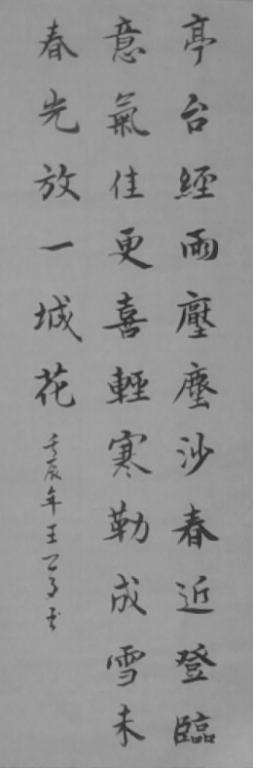 亭台經雨壓塵沙春近登臨
意氣佳更喜輕寒勒成雪未
春光放一城花
壬辰年王